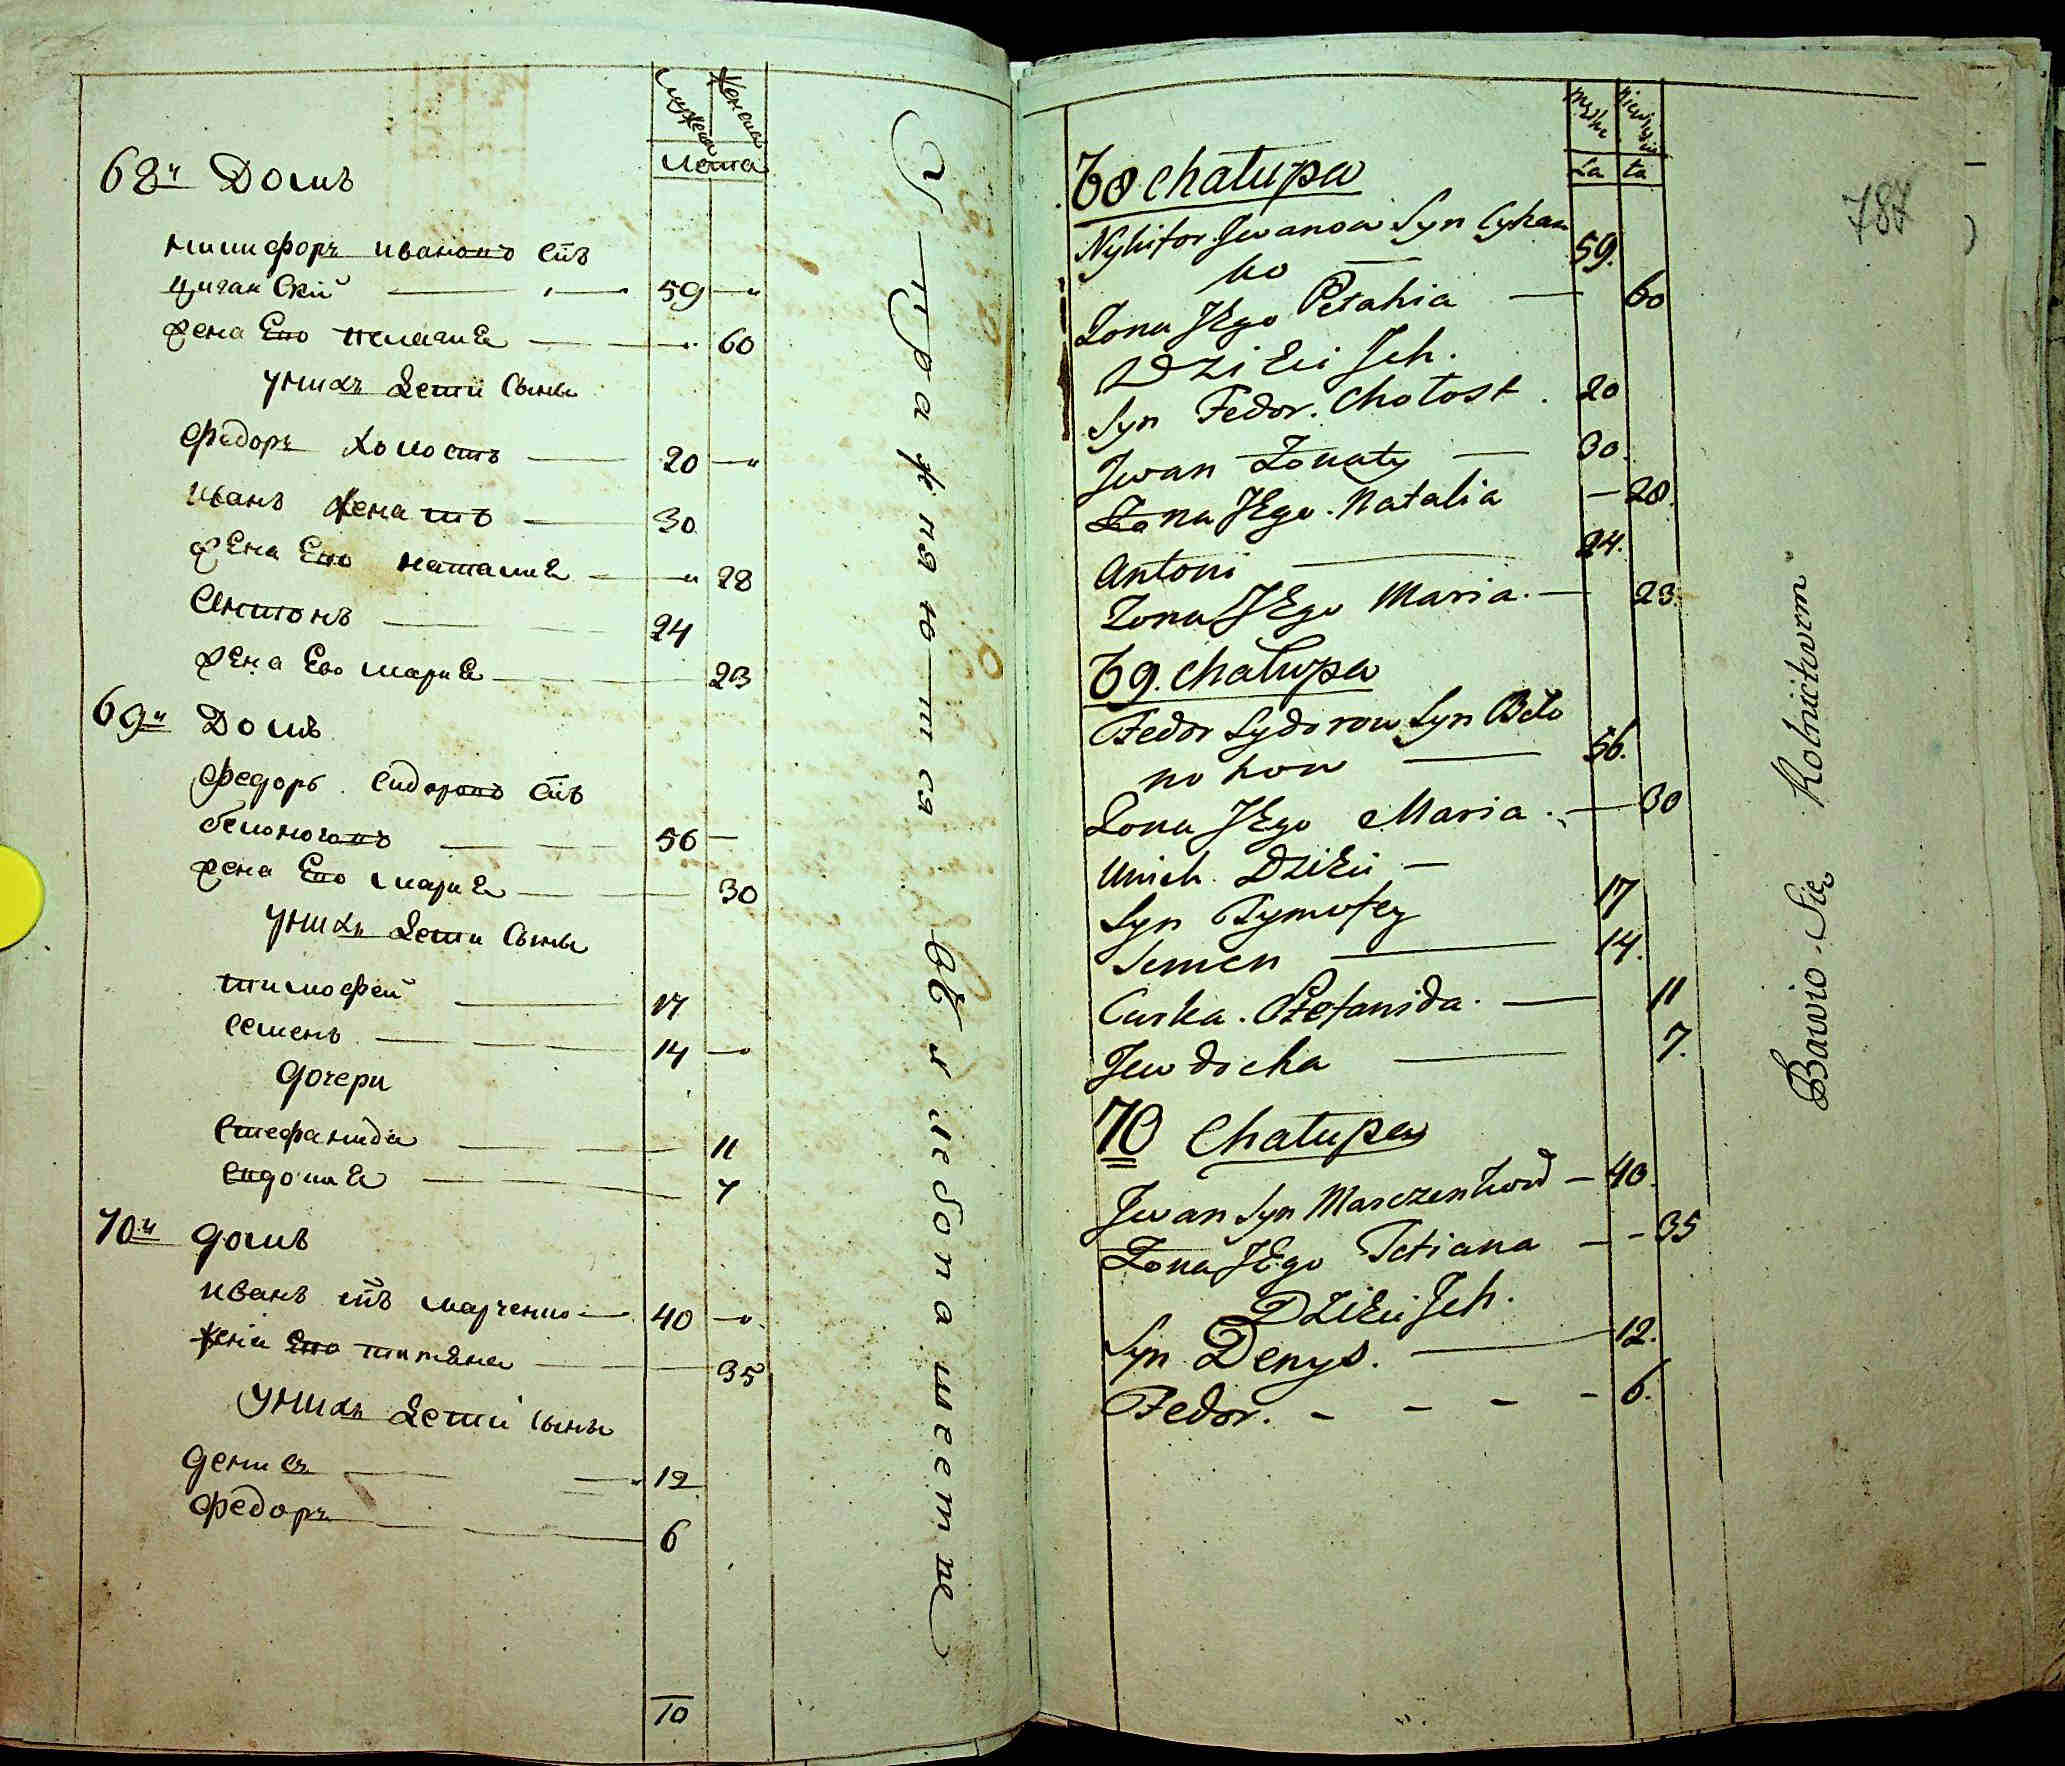 мужеска
женска
лета
68й Домъ
никифоръ ивановъ снъ
циганской 59
жена Его пелагиЕ 60
унихъ дети Сыны
федоръ холостъ 20
иванъ женатъ 30
жЕна Его наталиЕ 28
Антонъ 24
жЕна Его мариЕ 23
69й Домъ
федоръ сидоровъ снъ
белоноговъ 56
жена Его мариЕ 30
унихъ дети Сыны
тимофей 17
семенъ 14
дочери
стефанида 11
евдокиЕ 7
70й домъ
иванъ снъ марченко 40
жена Его татяна 35
унихъ дети сыны
денисъ 12
федоръ 6
10
Упражняются въ хлебопашетве
męzka
La ta
68 chałupa
Nykifor Jwanow Syn Cyhan
ko 59.
Żona JEgo Pełahia 60
DziEci Jch.
Syn Fedor. Chołost. 20
Jwan Żonaty 30.
Żona JEgo. Natalia 28.
Antoni 24.
Żona JEgo Maria. 23.
69. chałupa
Fedor Sydorow Syn Beło
nohow 56.
Żona JEgo Maria. 30
Unich DziEci
Syn Tymofey 17
Semen 14.
Curka. Stefanida. 11
Jewdocha 7.
70 Chałupa
Jwan Syn Marczenkow 40.
Żona JEgo Tetiana 35
DziEci Jch.
Syn Denys. 12.
Fedor. 6.
Bawio Się Rolnictwem
787